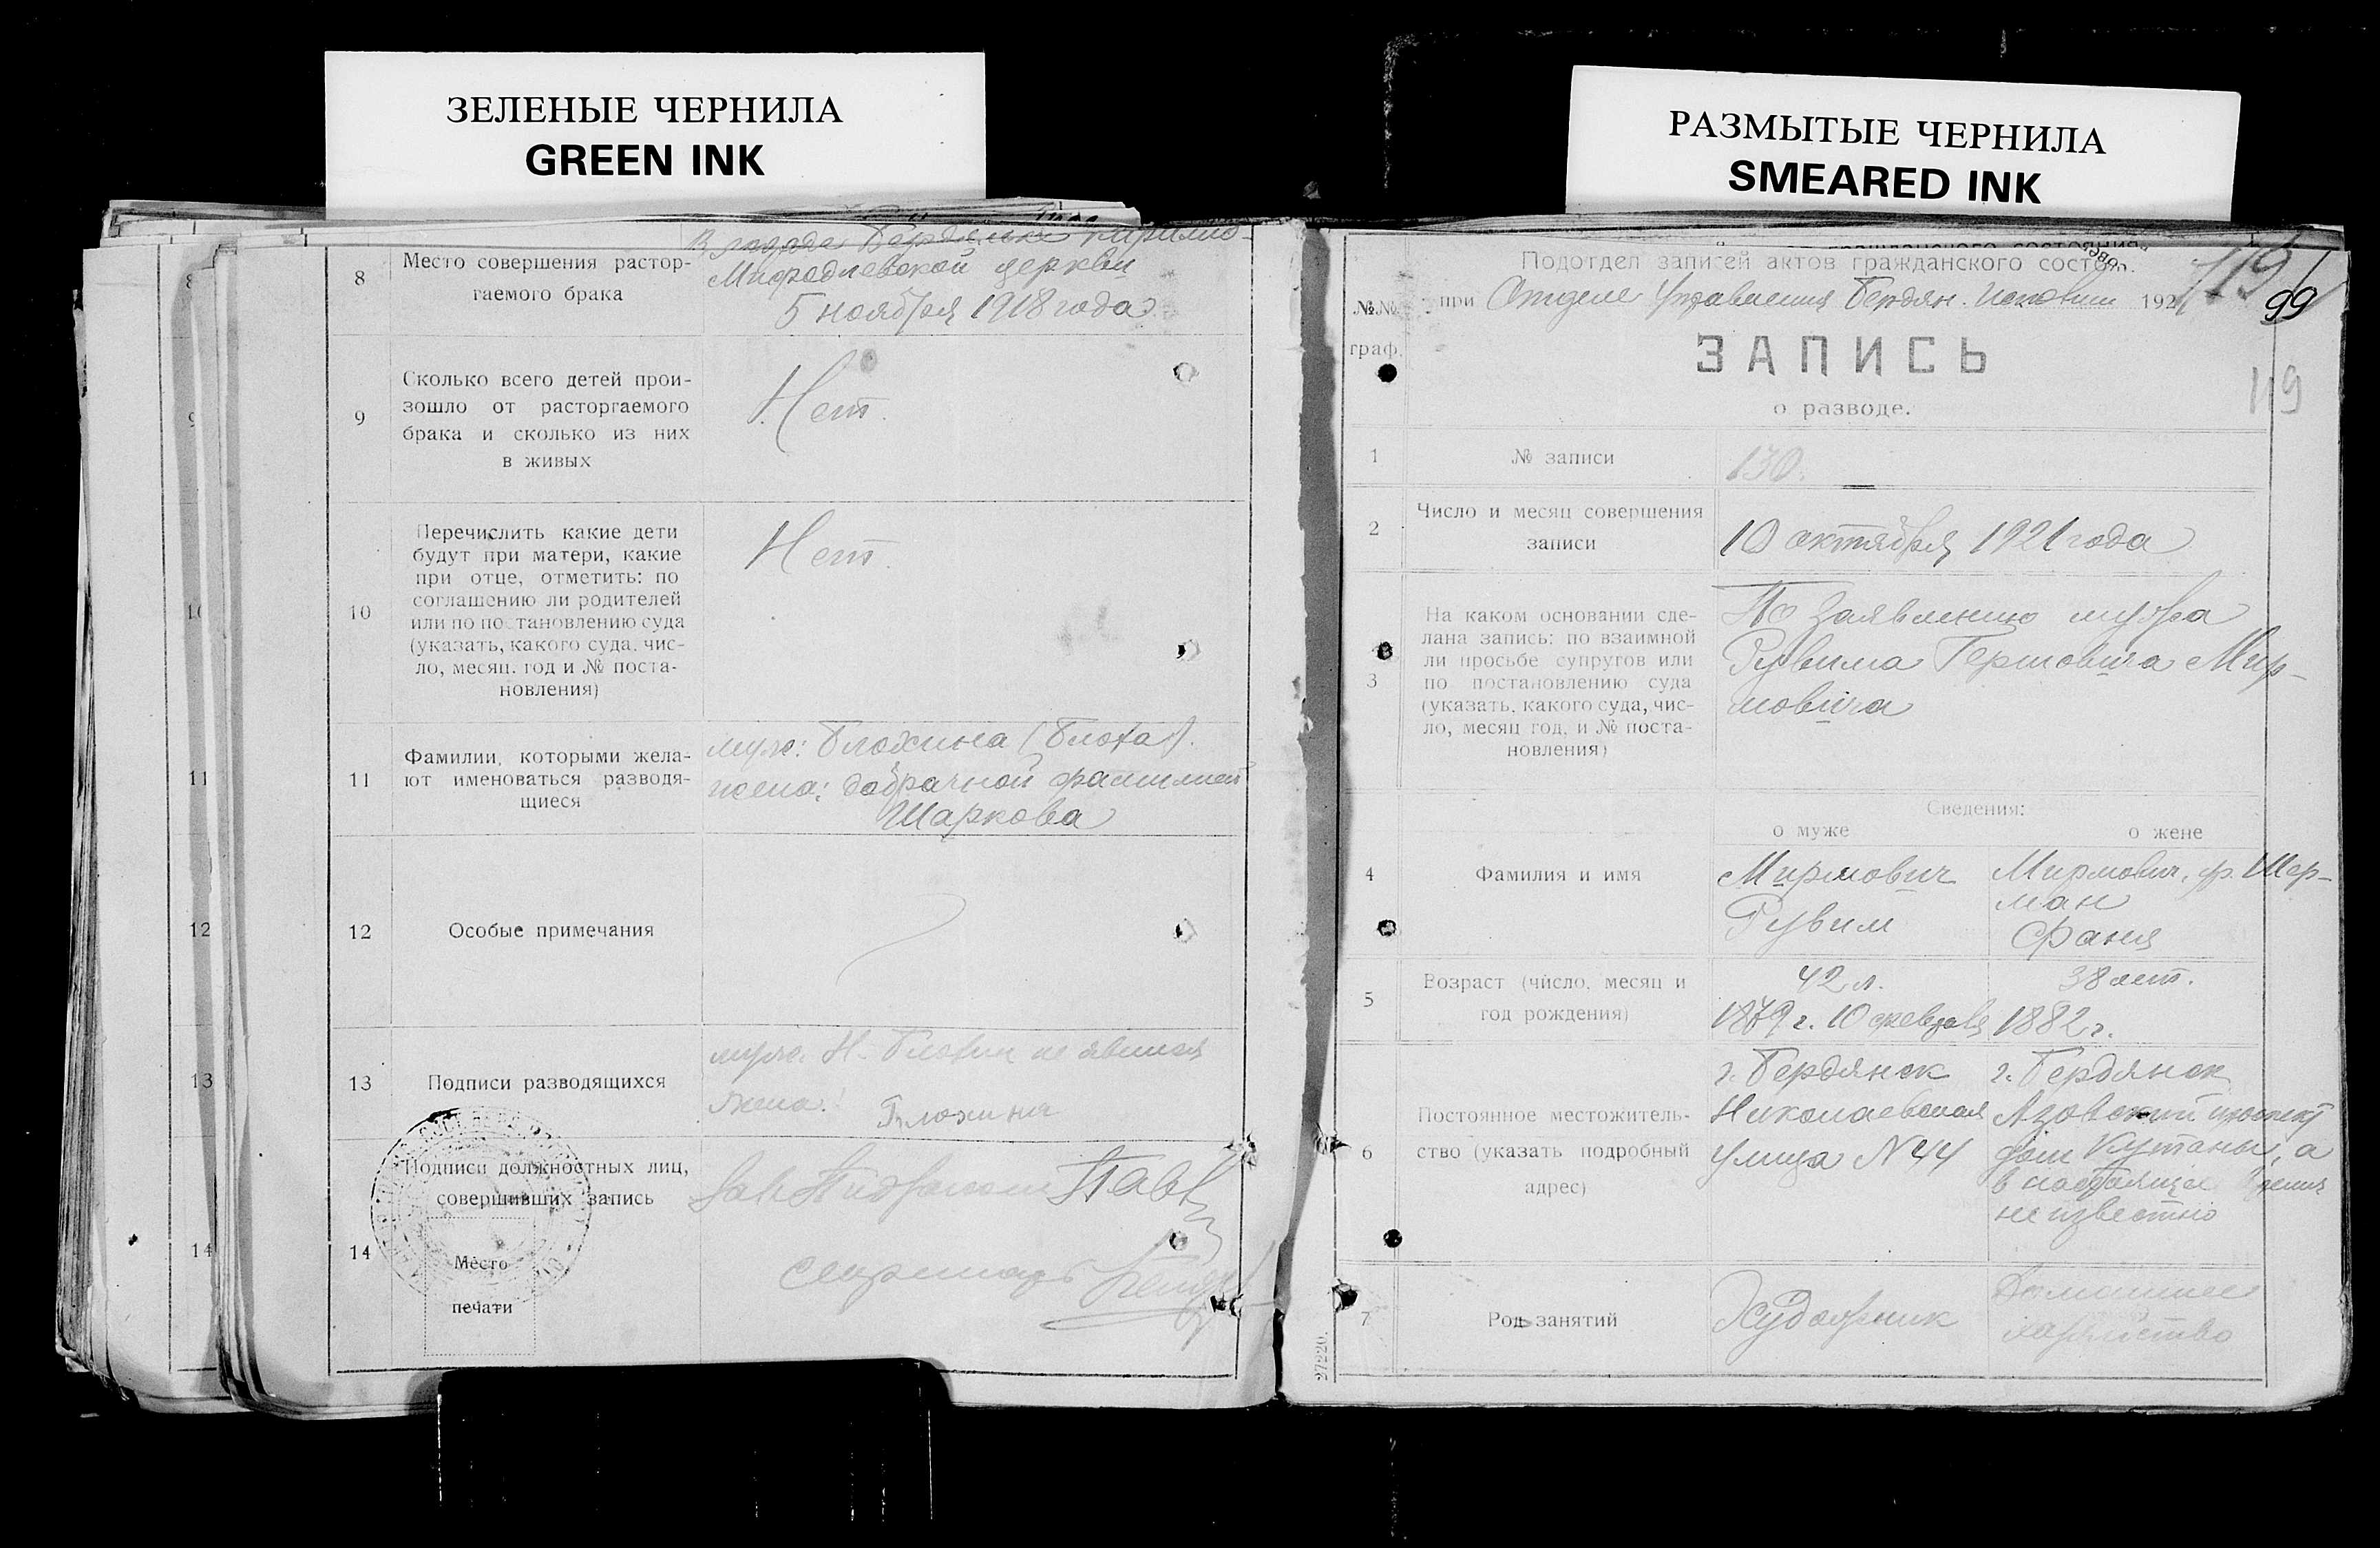 ЗЕЛЕНЫЕ ЧЕРНИЛА
GREEN INK
РАЗМЫТЫЕ ЧЕРНИЛА
SMEARED INK
8
Место совершения растор-
гаемого брака
В городе Бердянске Кирилло-
Мифодиевской церкви
5 ноября 1918 года
9
Сколько всего детей прои-
зошло от расторгаемого
брака и сколько из них
в живых
Нет.
10
Перечислить какие дети
будут при матери, какие
при отце, отметить: по
соглашению ли родителей
или по постановлению суда
(указать, какого суда, чис-
ло, месяц, год и № поста-
новления)
Нет.
11
Фамилии, которыми жела-
ют именоваться разводя-
щиеся
муж: Блохина (Блоха).
жена: добрачной фамилией
Шаркова
12
Особые примечания
13
Подписи разводящихся
муж Н. Блохин не явился
жена: Блохина
14
Подписи должностных лиц,
совершивших запись
Место
печати
секретарь
Подотдел записей актов гражданского состоян.
при Отделе Управления Бердян. Исполком 1921
119
99
119
№№
граф.
ЗАПИСЬ
о разводе.
1
№ записи
130.
2
Число и месяц совершения
записи
10 октября 1921 года
3
На каком основании сде-
лана запись: по взаимной
ли просьбе супругов или
по постановлению суда
(указать, какого суда, чис-
ло, месяц год, и № поста-
новления)
По заявлению мужа
Рувима Гершовича Мир-
мовича
Сведения:
о муже
о жене
4
Фамилия и имя
Мирмович
Рувим
Мирмович, ур. Шер-
ман
Фаня
5
Возраст (число, месяц и
год рождения)
42 л.
1879 г. 10 февраля
38 лет.
1882 г.
6
Постоянное местожитель-
ство (указать подробный
адрес)
г. Бердянск
Николаевская
улица N 44
г. Бердянск
Азовский проспект
дом Кутаны, а
в настоящее время
не известно
7
Род занятий
Художник
Домашнее
хозяйство
27220.